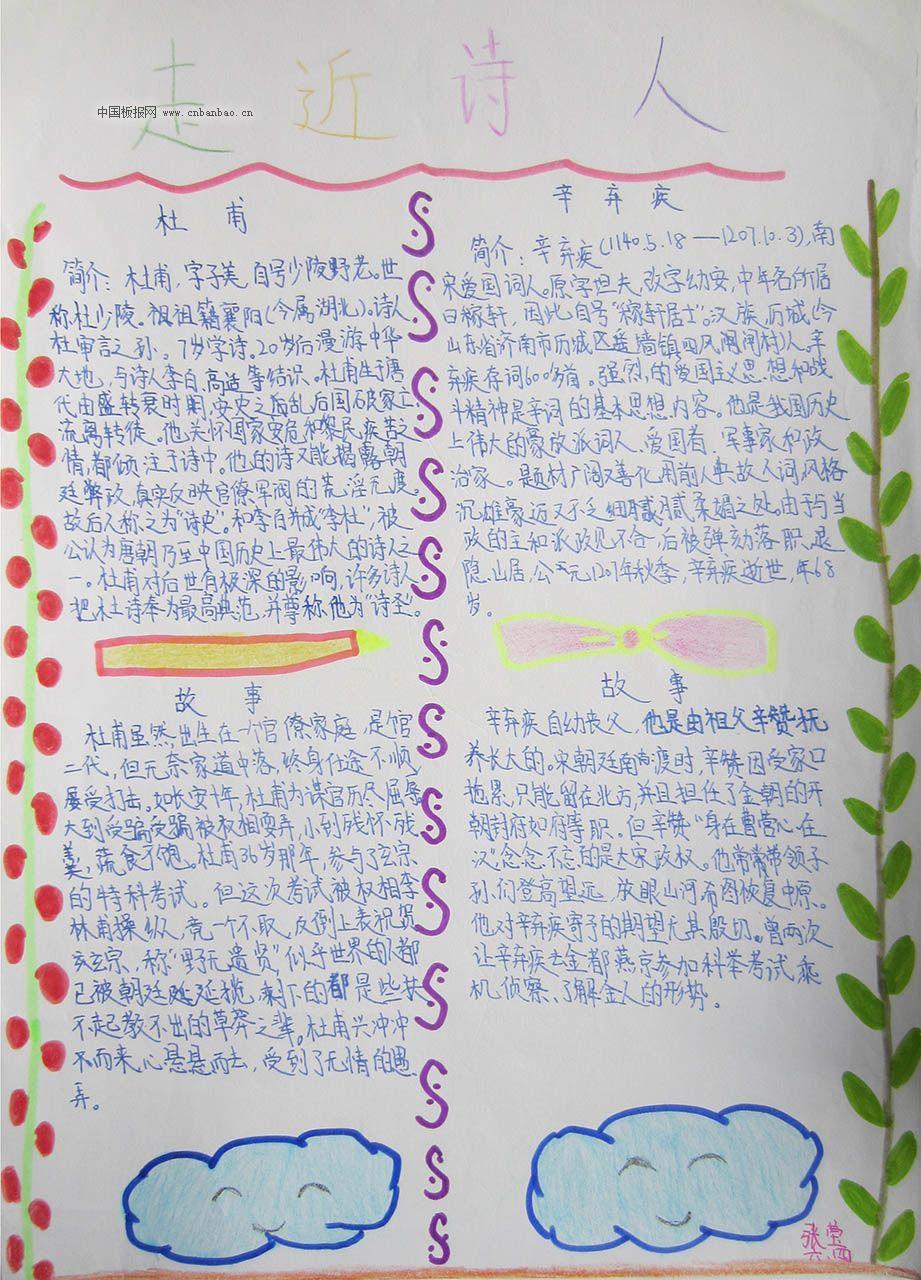 走近诗人
中国板报网 www.cnbanbao.cn
杜甫
简介：杜甫，字子美，自号少陵野老。世
称杜少陵。祖祖籍襄阳(今属湖北)。诗人
杜审言之孙。7岁学诗，20岁后漫游中华
大地，与诗人李白、高适等结识。杜甫生于唐
代由盛转衰时期，安史之乱后国破家亡
流离转徒。他关怀国家安危和黎民疾苦之
情都倾注于诗中。他的诗又能揭露朝
廷弊政，真实反映官僚军阀的荒淫无度。
故后人称之为“诗史”。和李白并成“李杜”，被
公认为唐朝乃至中国历史上最伟大的诗人之
一。杜甫对后世有极深的影响，许多诗人
把杜诗奉为最高典范，并尊称他为“诗圣”。
故事
杜甫虽然出生在一个官僚家庭，是官
二代，但无奈家道中落，终身仕途不顺，
屡受打击。如长安十年，杜甫为谋官历尽屈辱，
大到受骗受骗被权相耍弄，小到残怀残
羹，蔬食不饱。杜甫36岁那年，参与了玄宗
的特科考试。但这次考试被权相李
林甫操纵，竟一个不取，反倒上表祝贺
玄宗，称“野无遗贤”，似乎世界的都
已被朝廷挑，剩下的都是些扶
不起教不出的草莽之辈。杜甫兴冲冲
不而来，心悬悬而去，受到了无情的愚
弄。
辛弃疾
简介：辛弃疾(1140.5.18—1207.10.3)，南
宋爱国词人。原字坦夫，改字幼安，中年名所居
曰稼轩，因此自号“稼轩居士”。汉族，历城(今
山东省济南市历城区遥墙镇四风闸村)人。辛
弃疾存词600多首。强烈的爱国主义思想和战
斗精神是辛词的基本思想内容。他是我国历史
上伟大的豪放派词人、爱国者、军事家和政
治家。题材广阔又善化用前人典故入词，风格
沉雄豪迈又不乏细腻柔媚之处。由于与当
政的主和派政见不合，后被弹劾落职，退
隐山居，公元1207年秋季，辛弃疾逝世，年68
岁。
故事
辛弃疾自幼丧父，他是由祖父辛赞抚
养长大的。宋朝廷南渡时，辛赞因受家口
拖累，只能留在北方，并且担任了金朝的开
朝封府知府等职。但辛赞“身在曹营心在
汉”念念不忘的是大宋政权。他常常带领子
孙们登高望远，放眼山河希图恢复中原。
他对辛弃疾寄予的期望尤其殷切。曾两次
让辛弃疾去金都燕京参加科举考试，乘
机侦察、了解金人的形势。
张莹
六.四